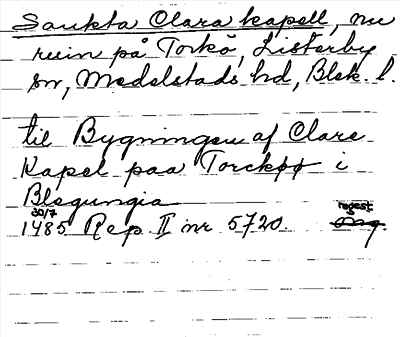 Sankta Clara kapell, nu
ruin på Torkö, Listerby
sn, Medelstads hd, Blek. l.
til Bygningen af Clare
Kapel paa Torckøø i
Blegungia
30/7
1485 Rep. II nr 5720. regest
Orig